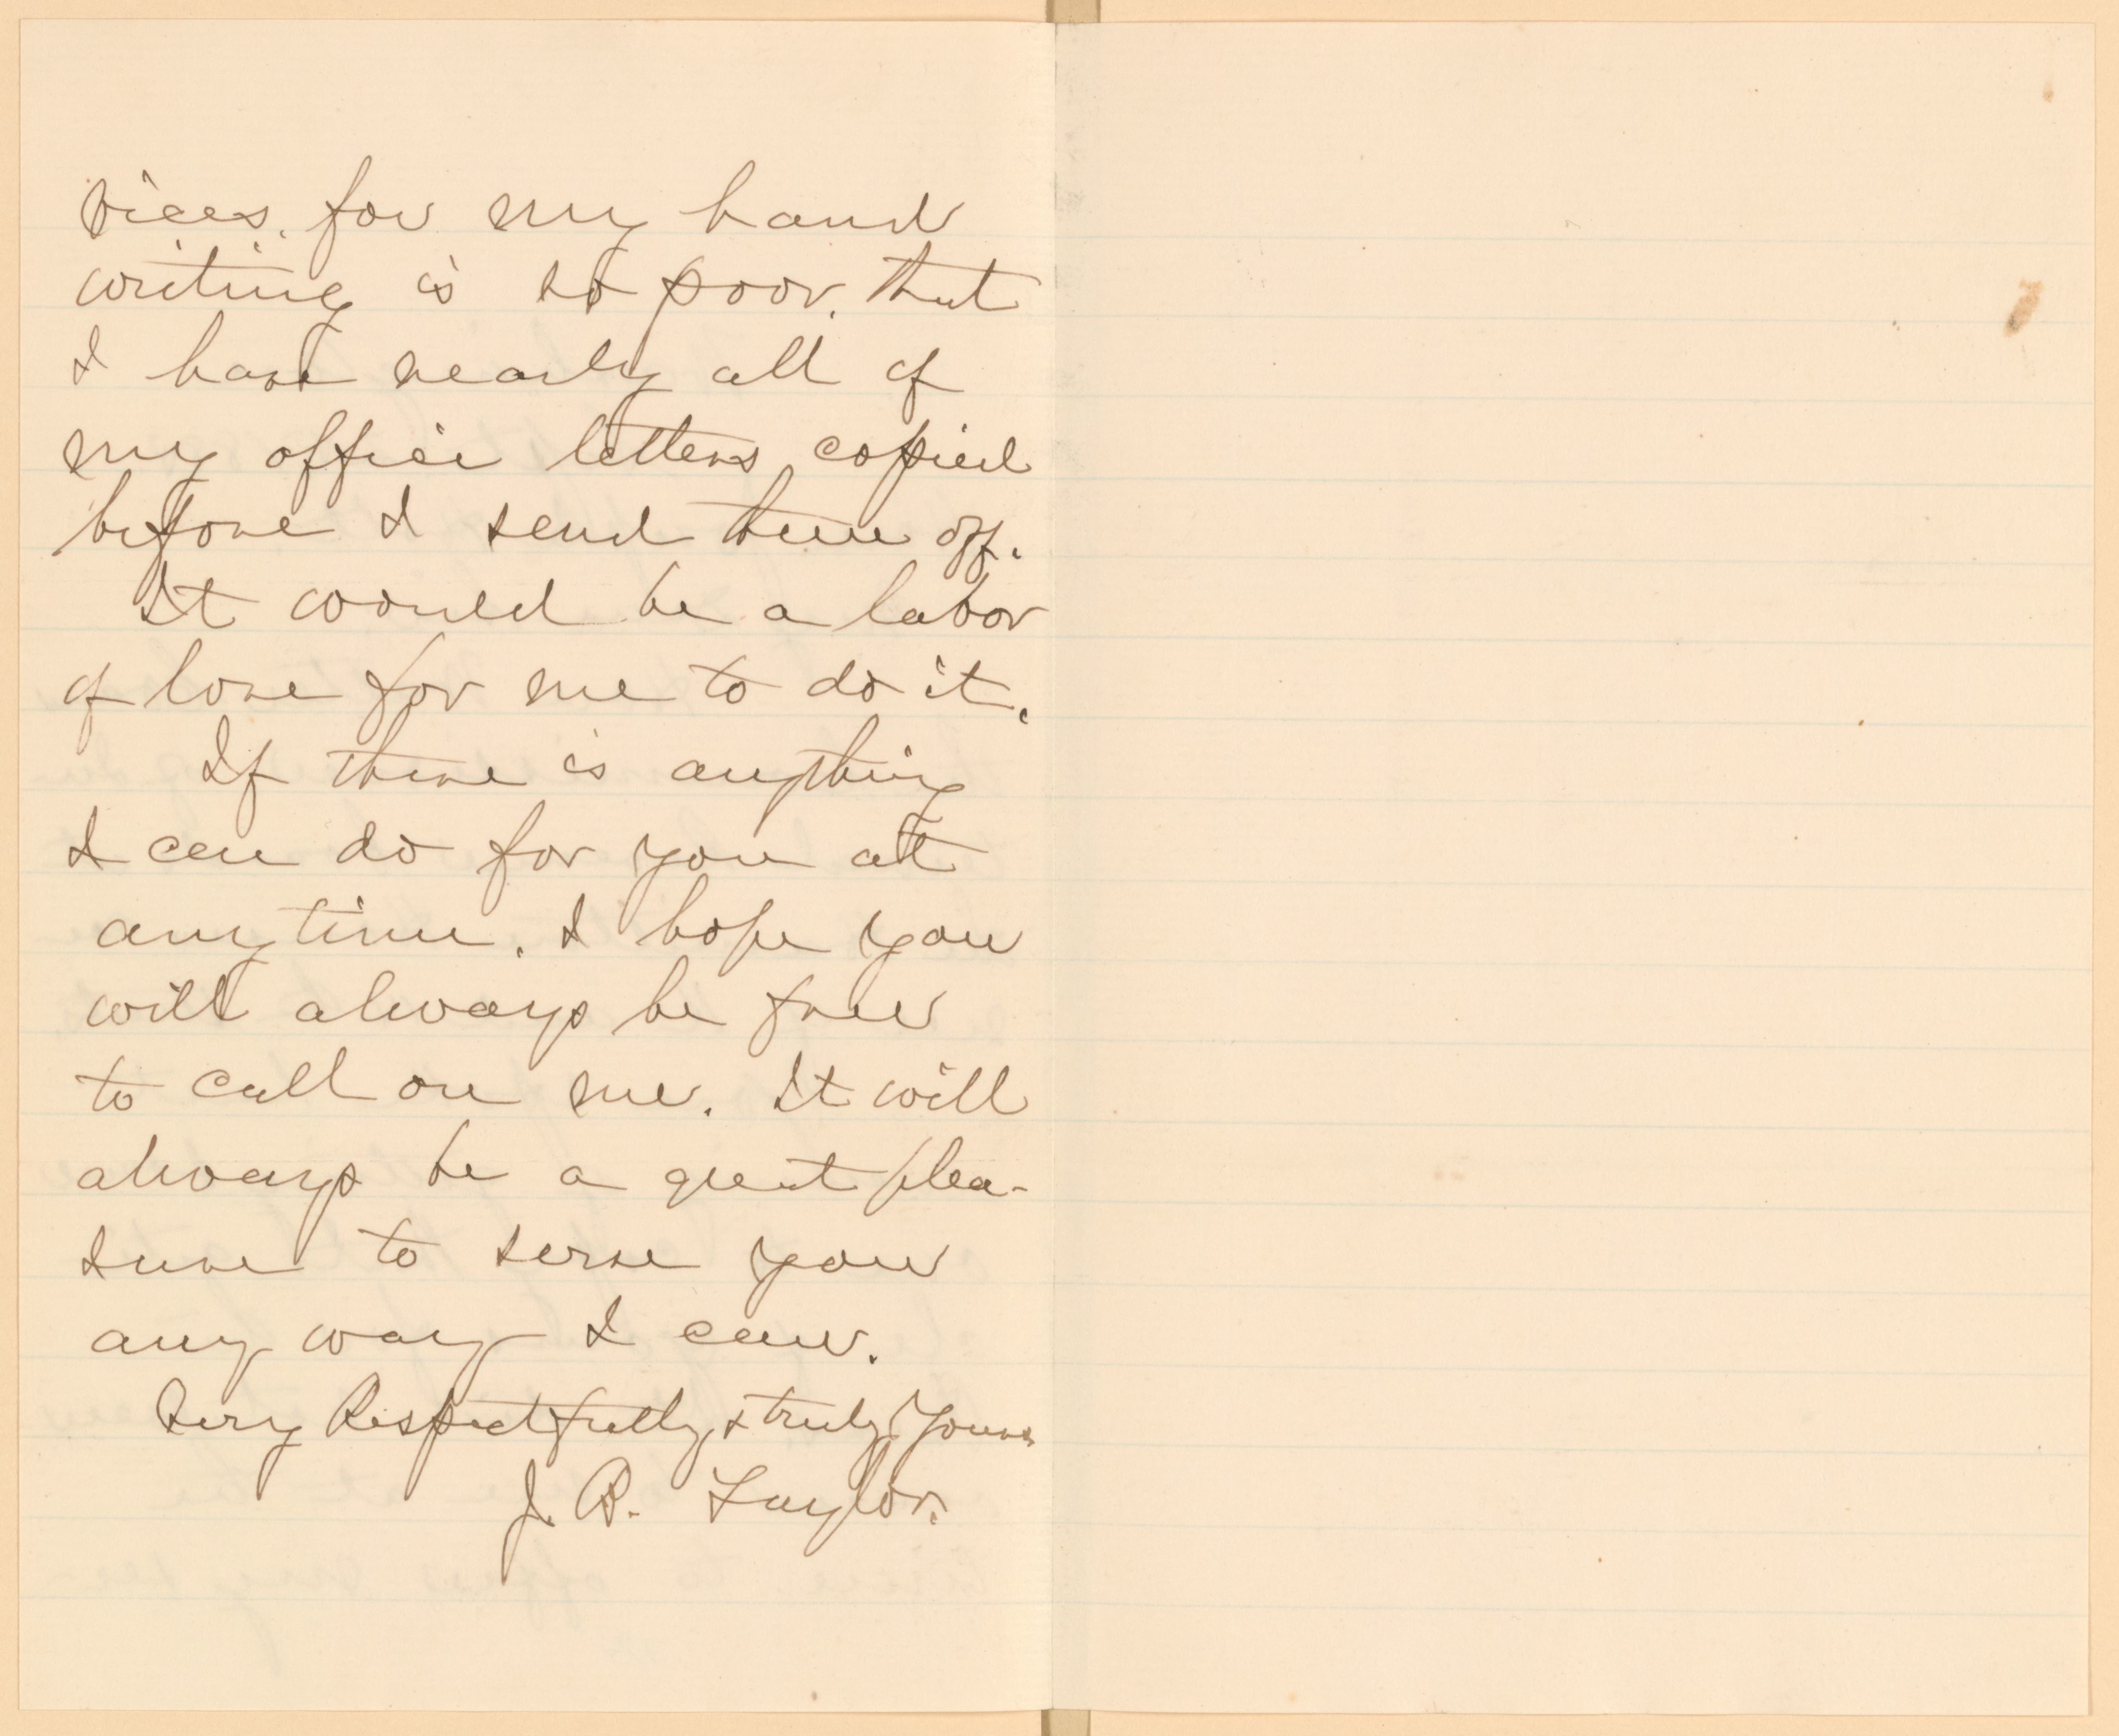 vices. for my hand
writing is so poor. that
I have nearly all of
my office letters copied
before I send them off.
It would be a labor
of love for me to do it.
If there is anything
I can do for you at
any time. I hope you
will always be free
to call on me. It will
always be a great plea-
sure to serve you
any way I can.
Very Respectfully & truly Yours
J. R. Taylor.